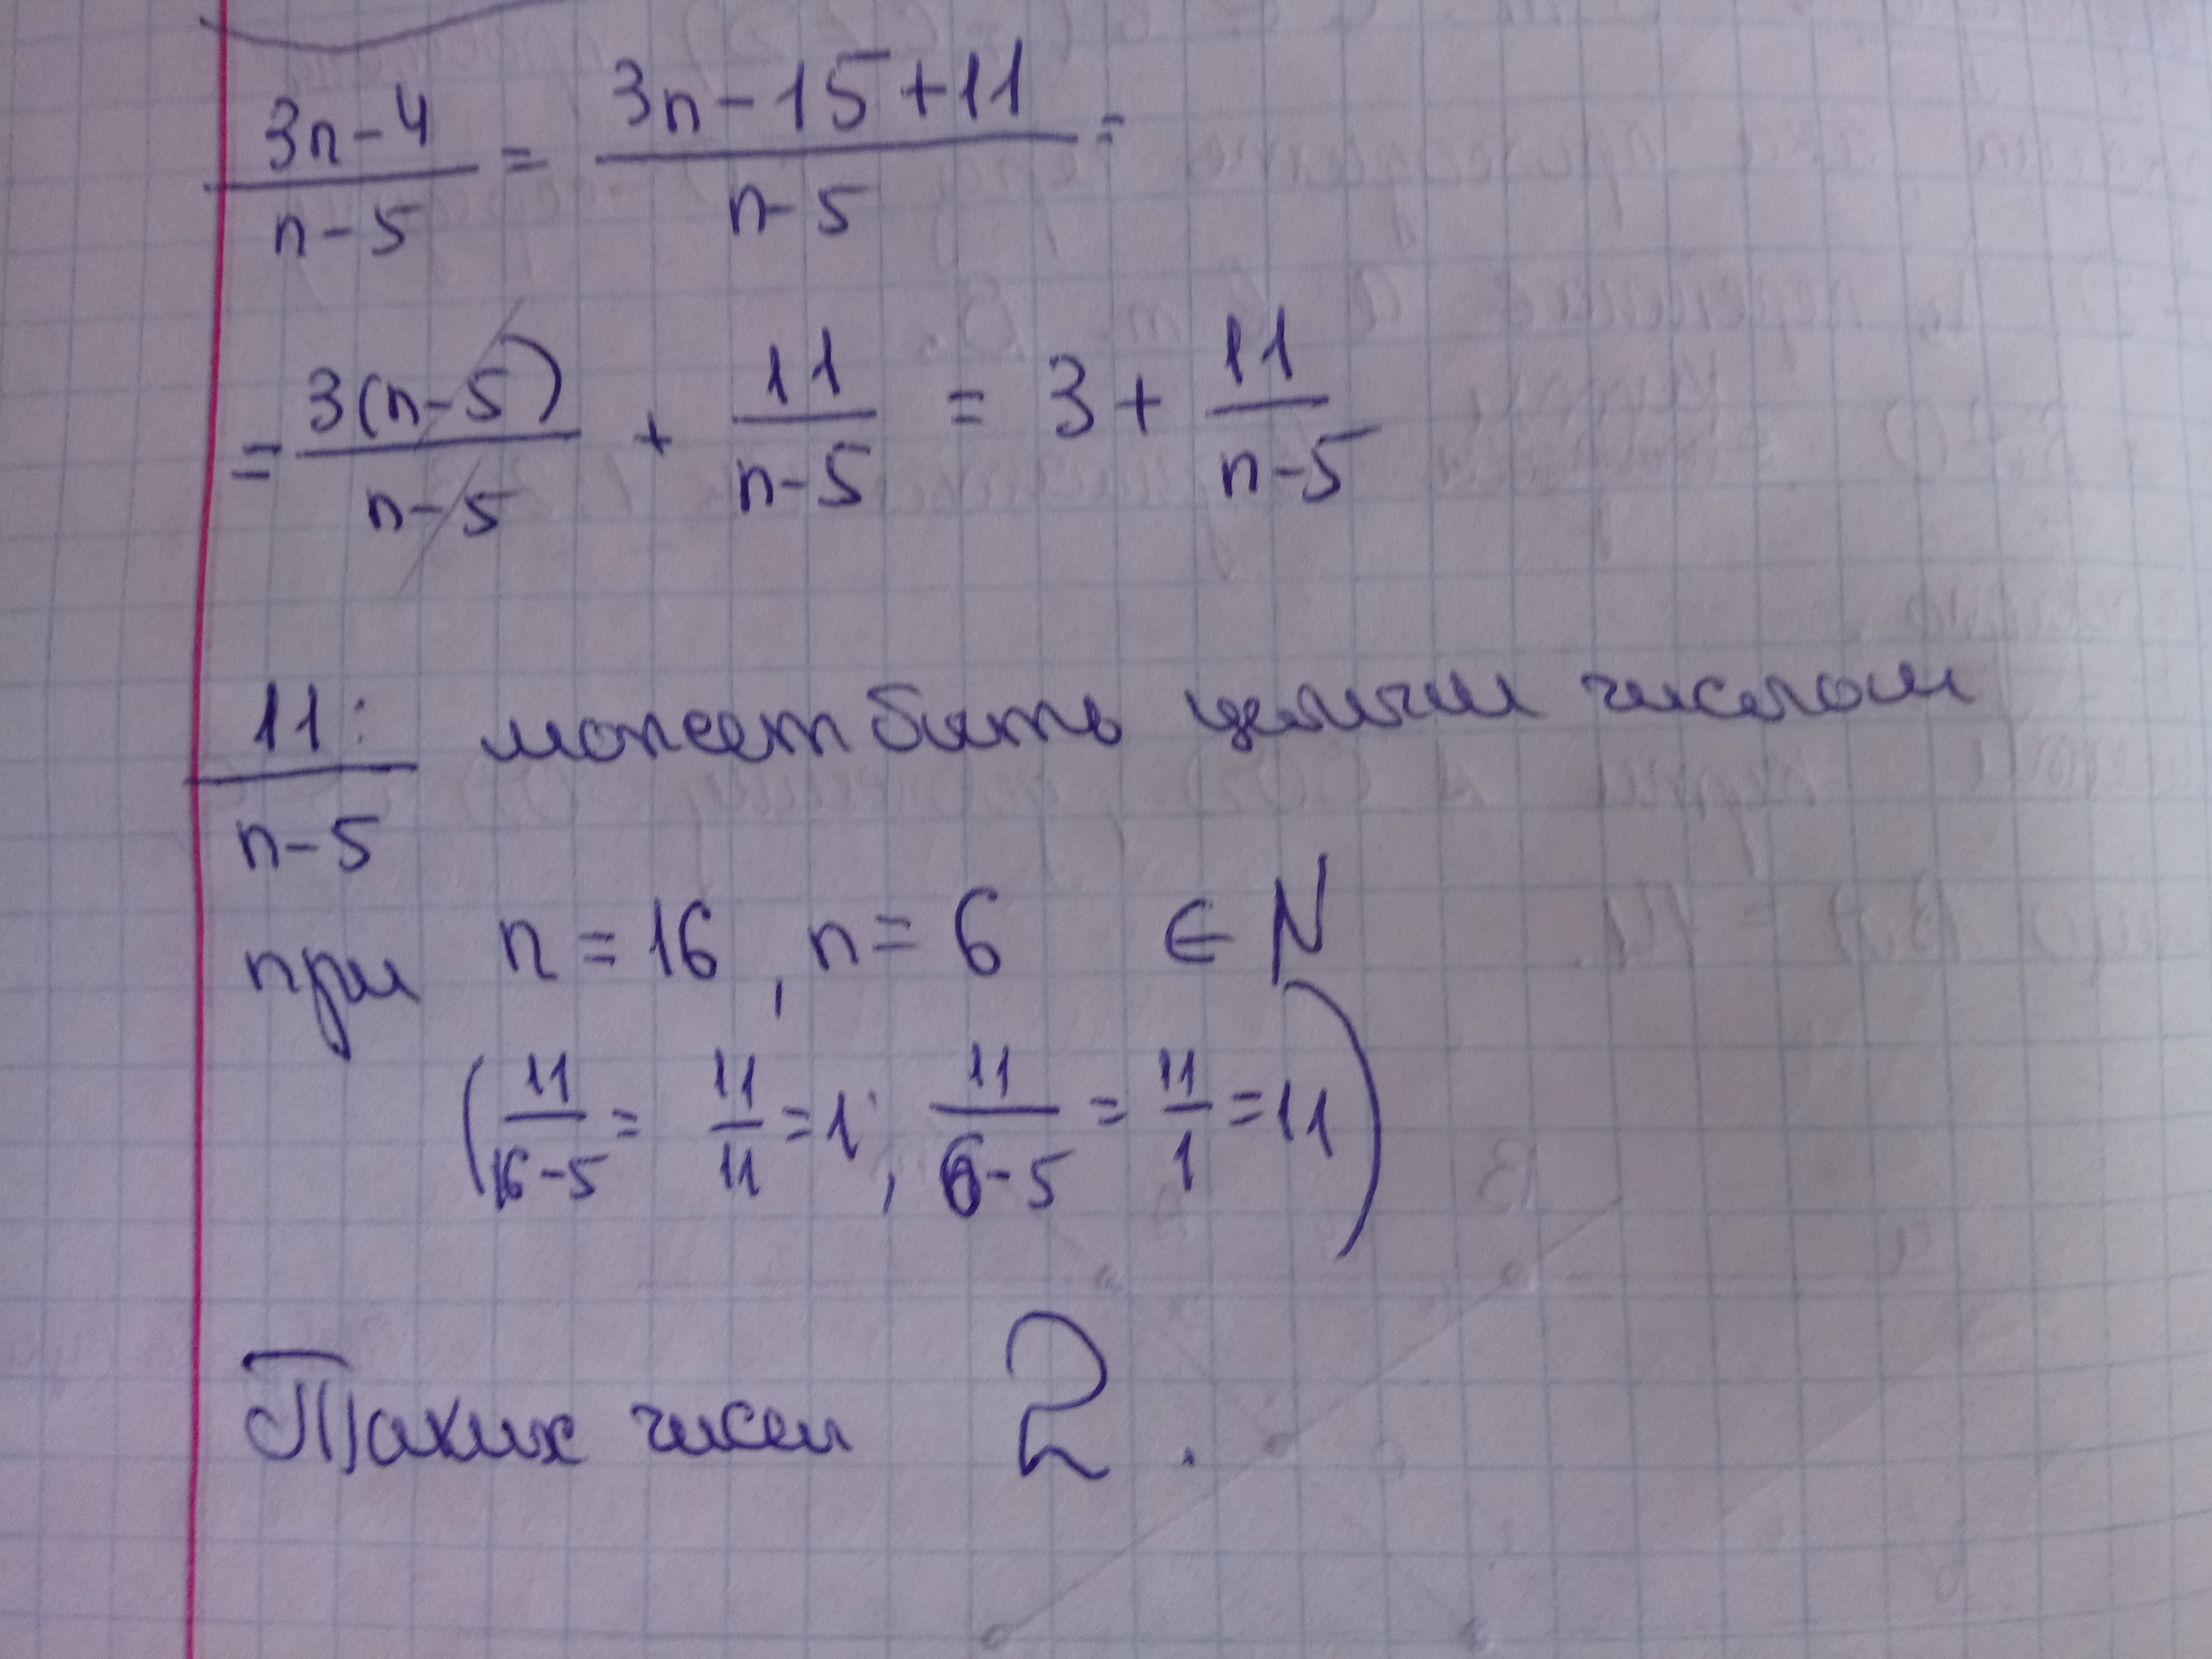 3n-4/n-5 = 3n-15+11/n-5 =
= 3(n-5)/n-5 + 11/n-5 = 3 + 11/n-5
11:/n-5 может быть целым числом
при n = 16, n = 6 ∈ N
(11/16-5 = 11/11 = 1; 11/6-5 = 11/1 = 11)
Таких чисел 2.